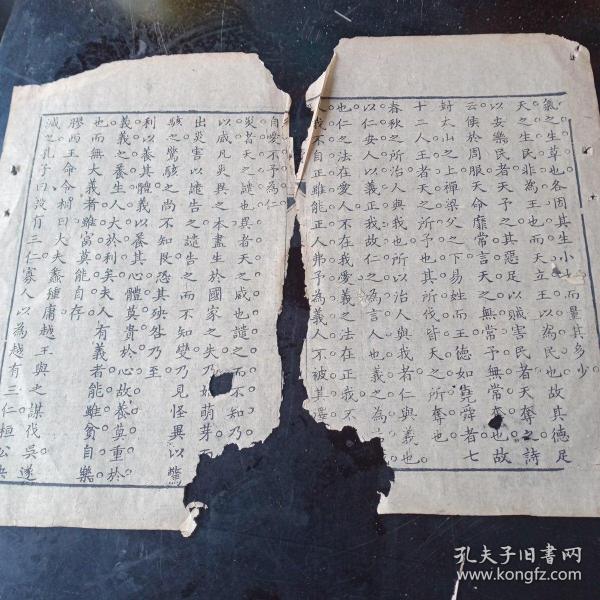 氣之生草也各因其生小大而量其多少
天之生民非為王也而天立王以為民也故其德足
以安樂民者天予之其惡足以賊害民者天奪之詩
云侯於周服天命靡常言天之無常予無常奪也故
封太山之上禪梁父之下易姓而王德如堯舜者七
十二人王者天之所予也其所伐皆天之所奪也
春秋之所治人與我也所以治人與我者仁與義也
以仁安人以義正我故仁之為言人也義之為
也仁之法在愛人不在我愛義之法在正我不
人我不自正雖能正人弗予為義人不被其澤
自愛不予為仁
災者天之譴也異者天之威也譴之而不知乃
以威凡災異之本盡生於國家之失乃始萌芽而
出災害以譴告之譴告之而不知變乃見怪異以驚
駭之驚駭之尚不知畏恐其殃咎乃至
利以養其體義以養其心體莫貴於心故養莫重於
義義之養生人大於利矣夫人有義者能雖貧自樂
也而無大義者雖富莫能自存
膠西王命令相曰大夫蠡種庸越王與之謀伐吳遂
滅之孔子曰殷有三仁寡人以為越有三仁桓公決
孔夫子旧書网
www.kongfz.com